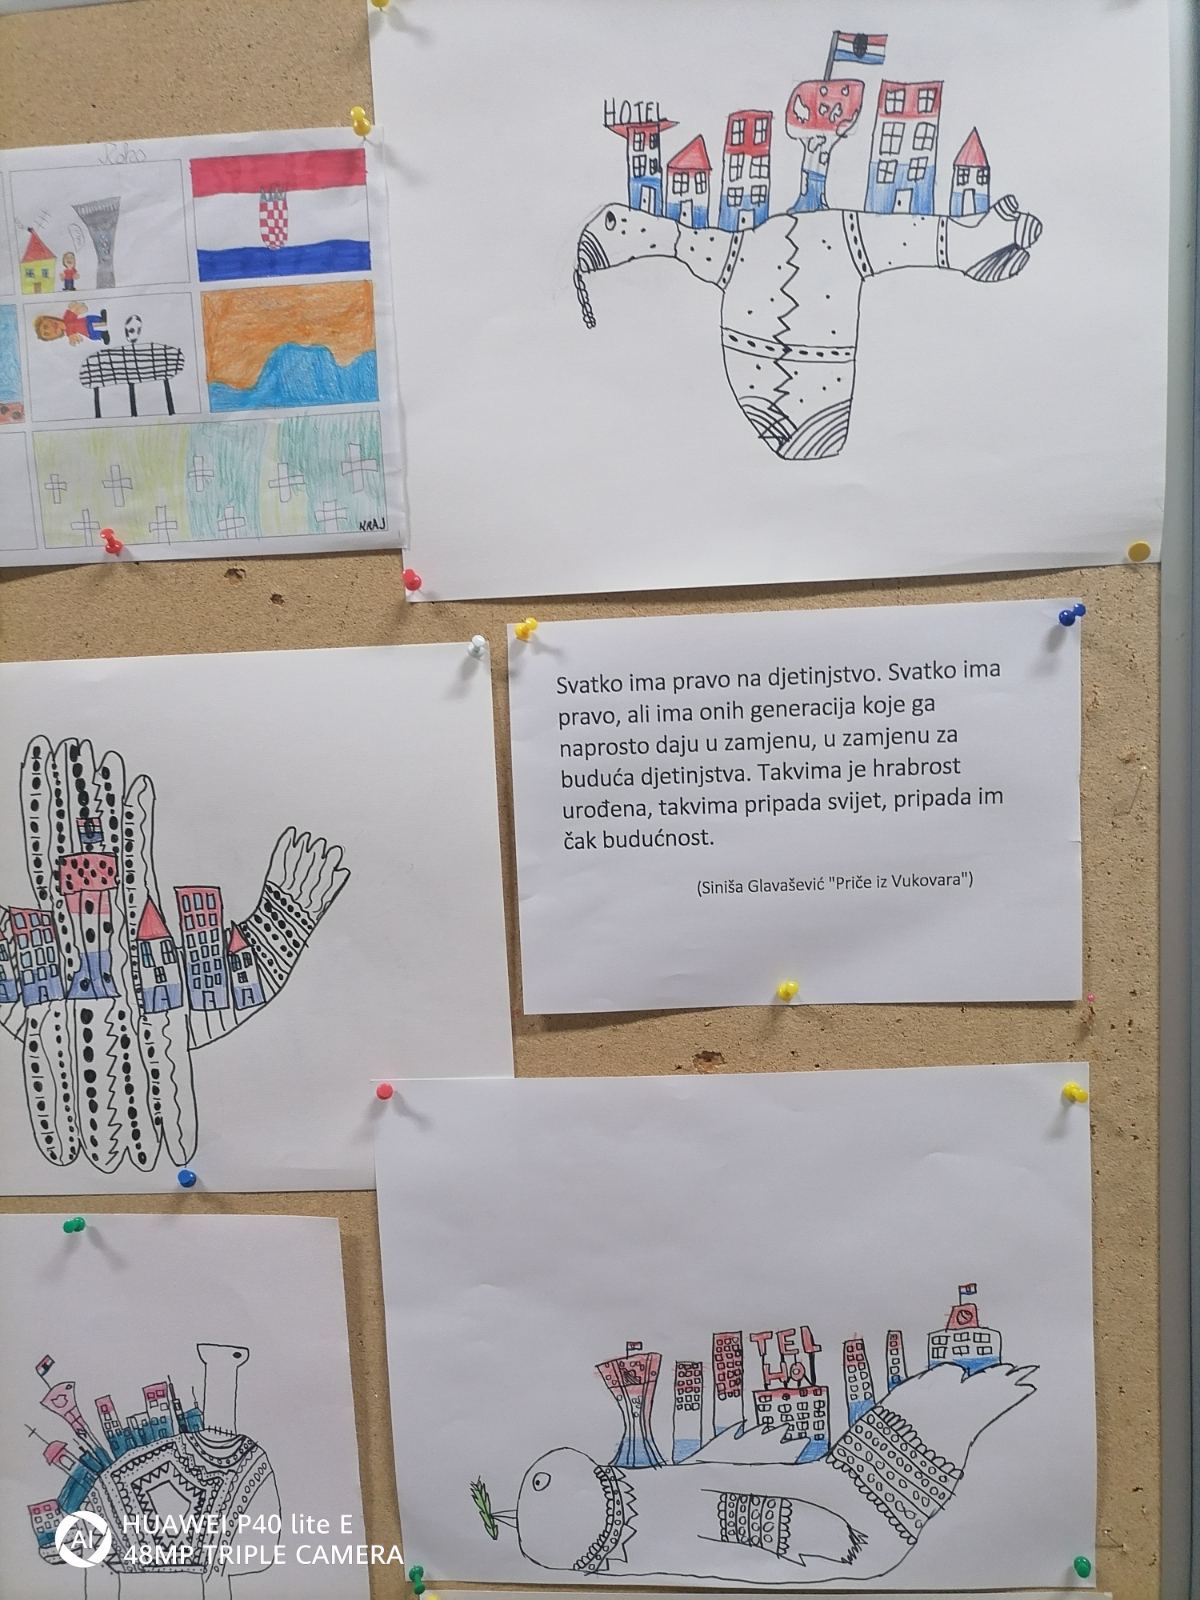 HOTEL
Roko
KRAJ
Svatko ima pravo na djetinjstvo. Svatko ima
pravo, ali ima onih generacija koje ga
naprosto daju u zamjenu, u zamjenu za
buduća djetinjstva. Takvima je hrabrost
urođena, takvima pripada svijet, pripada im
čak budućnost.
(Siniša Glavašević "Priče iz Vukovara")
TEL
HO
AI
HUAWEI P40 lite E
48MP TRIPLE CAMERA